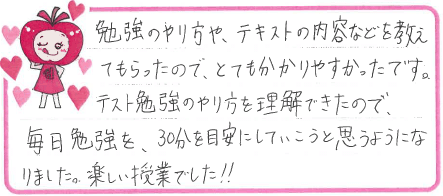 勉強のやり方や、テキストの内容などを教え
てもらったので、とても分かりやすかったです。
テスト勉強のやり方を理解できたので、
毎日勉強を、30分を目安にしていこうと思うようにな
りました。楽しい授業でした!!